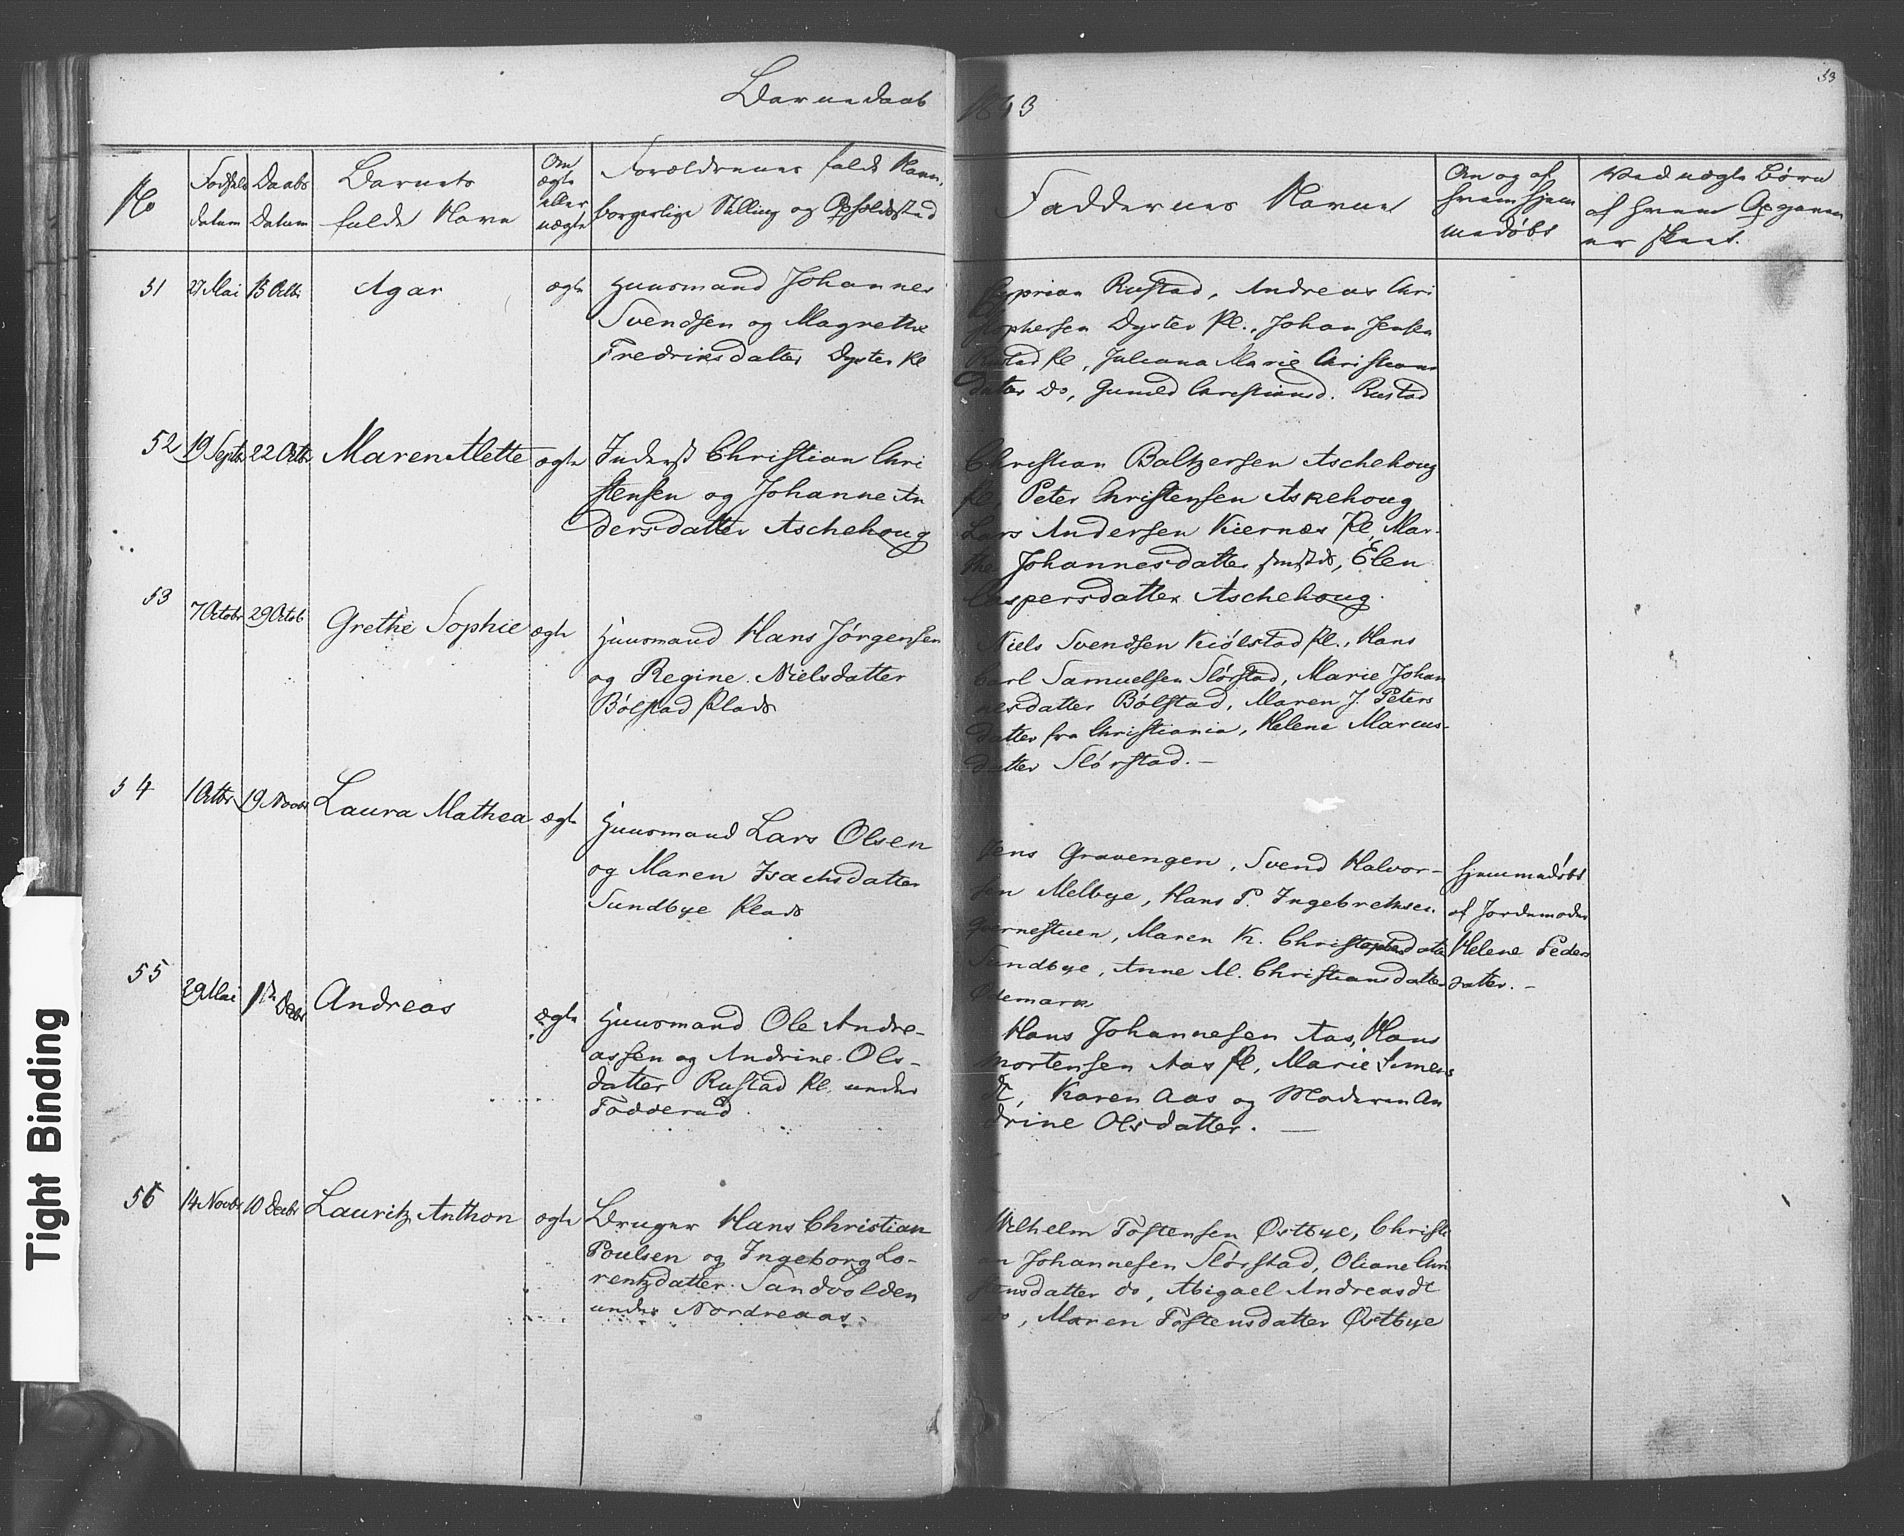 Barnedaab
1843
33
No
Fødsels
datum
Daabs
Datum
Barnets
fulde Navn
Om
ægte
eller
uægte
Forældrenes fulde Navn,
borgerlige Stilling og Opholdssted
Faddernes Navne
Om og af
hvem hjem
medøbt
Ved uægte Børn
af hvem Opgaven
er skeet.
51 27 Mai 15 Octbr Agar ægte
Huusmand Johannes
Svendsen og Magrethe
Fredriksdatter Dyster Pl
Cyprian Rustad, Andreas Chri
stophersen Dyster Pl., Johan Jensen
Rustad Pl, Juliana Marie Christians
datter do, Gunild Christiansd. Rustad
52 19 Septbr 22 Octbr Maren Alette ægte
Inderst Christian Chri
stensen og Johanne An
dersdatter Aschehoug
Christian Baltzersen Aschehoug
Pl, Peter Christensen Askehoug
Lars Andersen Kiernæs Pl, Mar-
the Johannesdatter, Elen
Caspersdatter Aschehoug.
53 7 Octobr 29 Octob Grethe Sophie ægte
Huusmand Hans Jørgensen
og Regine Nielsdatter
Bølstad Plads
Niels Svendsen Kiølstad Pl., Hans
Carl Samuelsen Slørstad, Marie Johan
nesdatter Bølstad, Maren J. Peters
datter fra Christiania, Helene Marcus-
datter Slørstad. —
54 1 Octbr 19 Novbr Laura Mathea ægte
Huusmand Lars Olsen
og Maren Isachsdatter
Sundbye Plads
Jens Gravengen, Svend Halvor-
sen Melbye, Hans P. Ingebretsen
Qvernestuen, Maren K. Christophersdatter
Sundbye, Anne M. Christiansdatter
Ødemark
Hjemmedøbt
af Jordemoder
Helene Peders
datter. –
55 29 Mai 1ste Decbr Andreas ægte
Huusmand Ole Andre-
assen og Andrine Ols-
datter Rustad Pl. under
Fodderud.
Hans Johannesen Aas, Hans
Mortensen Aas Pl, Marie Simens
dt, Karen Aas og Moderen An
drine Olsdatter. —
56 14 Novbr 10 Decbr Lauritz Anthon ægte
Bruger Hans Christian
Poulsen og Ingeborg Lo-
rentzdatter Sandvolden
under Nordreaas.
Wilhelm Tostensen Østbye, Christi
an Johannesen Slørstad, Oliane Chri
stensdatter do, Abigael Andreasdt
do, Maren Tostensdatter Østbye
Tight Binding